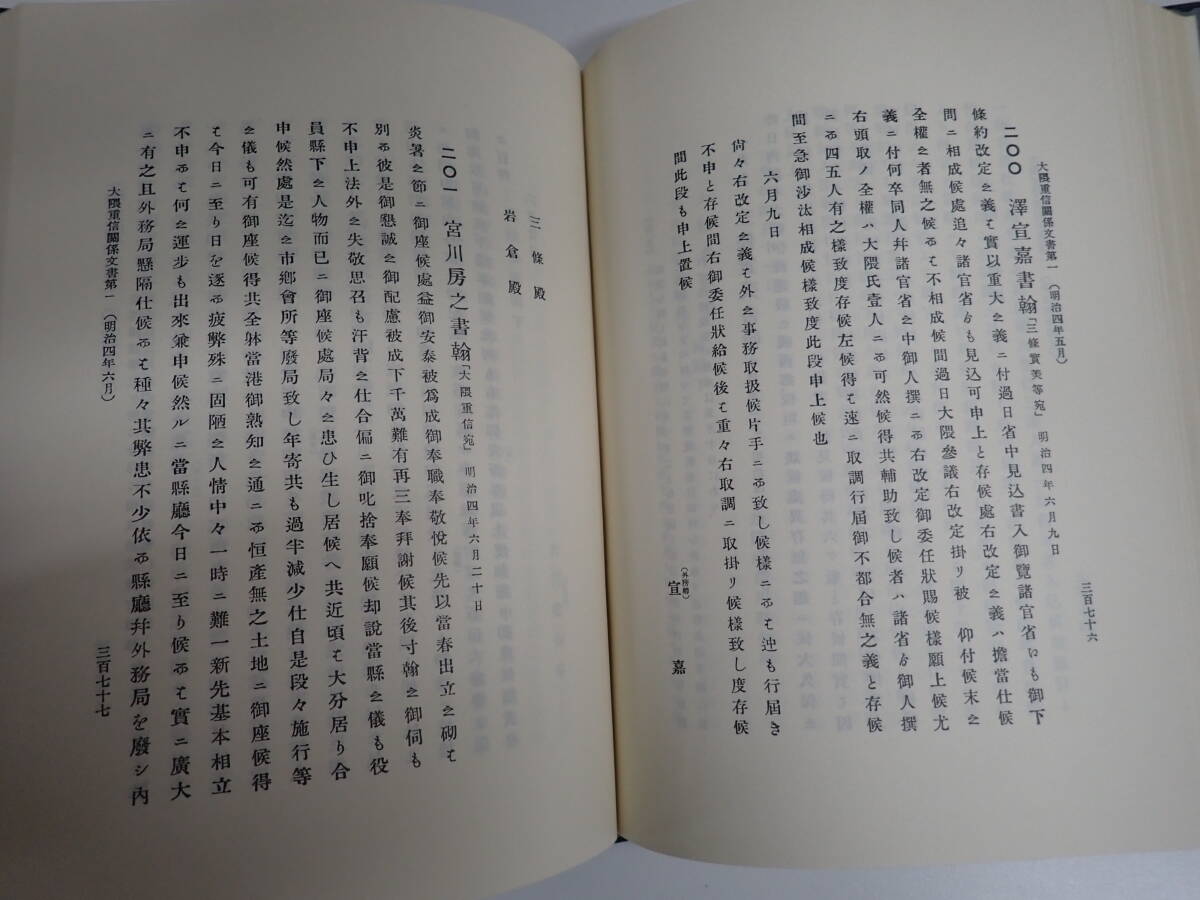 大隈重信關係文書第一 (明治四年五月)
三百七十六
二〇〇 澤宣嘉書翰「三條實美等宛」 明治四年六月九日
條約改定之義ハ實以重大之義ニ付過日省中見込書入御覽諸官省ゟも御下
問ニ相成候處追々諸官省ゟも見込可申上と存候處右改定之義ハ擔當仕候
全權之者無之候而ハ不相成候間過日大隈參議右改定掛リ被 仰付候末之
義ニ付何卒同人幷諸官省之中御人撰ニ而右改定御委任狀賜候樣願上候尤
右頭取ノ全權ハ大隈氏壹人ニ而可然候得共輔助致し候者ハ諸省ゟ御人撰
ニ而四五人有之樣致度存候左候得ハ速ニ取調行屆御不都合無之義と存候
間至急御沙汰相成候樣致度此段申上候也
六月九日
尙々右改定之義ハ外之事務取扱候片手ニ而致し候樣ニ而ハ迚も行屆き
不申と存候間右御委任狀給候後ハ重々右取調ニ取掛リ候樣致し度存候
間此段も申上置候
(外務卿)
宣嘉
三條殿
岩倉殿
二〇一 宮川房之書翰「大隈重信宛」 明治四年六月二十日
炎暑之節ニ御座候處益御安泰被爲成御奉職奉敬悅候先以當春出立之砌ハ
別而彼是御懇誠之御配慮被成下千萬難有再三奉拜謝候其後寸翰之御伺も
不申上法外之失敬思召も汗背之仕合偏ニ御叱捨奉願候却說當縣之儀も役
員縣下之人物而已ニ御座候處局々之患ひ生し居候へ共近頃ハ大分居り合
申候然處是迄之市鄕會所等廢局致し年寄共も過半減少仕自是段々施行等
之儀も可有御座候得共全躰當港御熟知之通ニ而恒產無之土地ニ御座候得
ハ今日ニ至り日を逐而疲弊殊ニ固陋之人情中々一時ニ難一新先基本相立
不申而ハ何之運步も出來兼申候然ルニ當縣廳今日ニ至り候而ハ實ニ廣大
ニ有之且外務局懸隔仕候而ハ種々其弊患不少依而縣廳幷外務局を廢シ內
大隈重信關係文書第一 (明治四年六月)
三百七十七